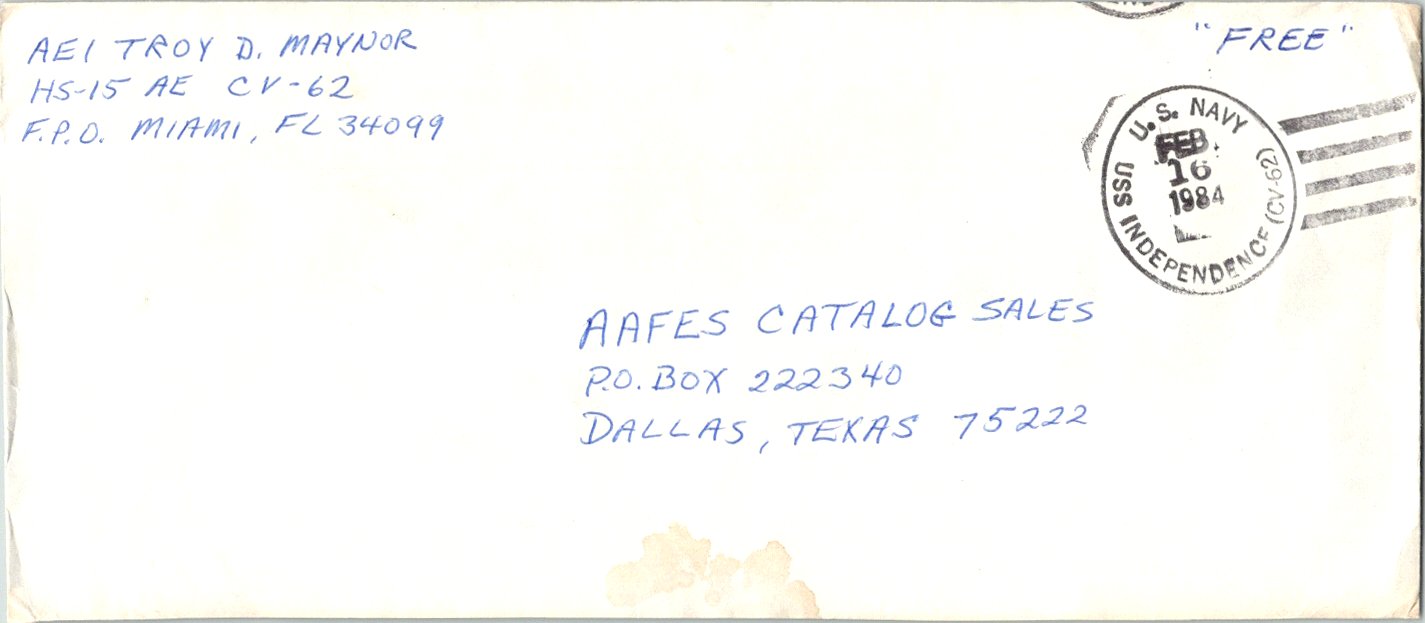 AE1 TROY D. MAYNOR
HS-15 AE CV-62
F.P.O. MIAMI, FL 34099
"FREE"
U.S. NAVY
FEB
16
1984
USS INDEPENDENCE (CV-62)
AAFES CATALOG SALES
P.O. BOX 222340
DALLAS, TEXAS 75222